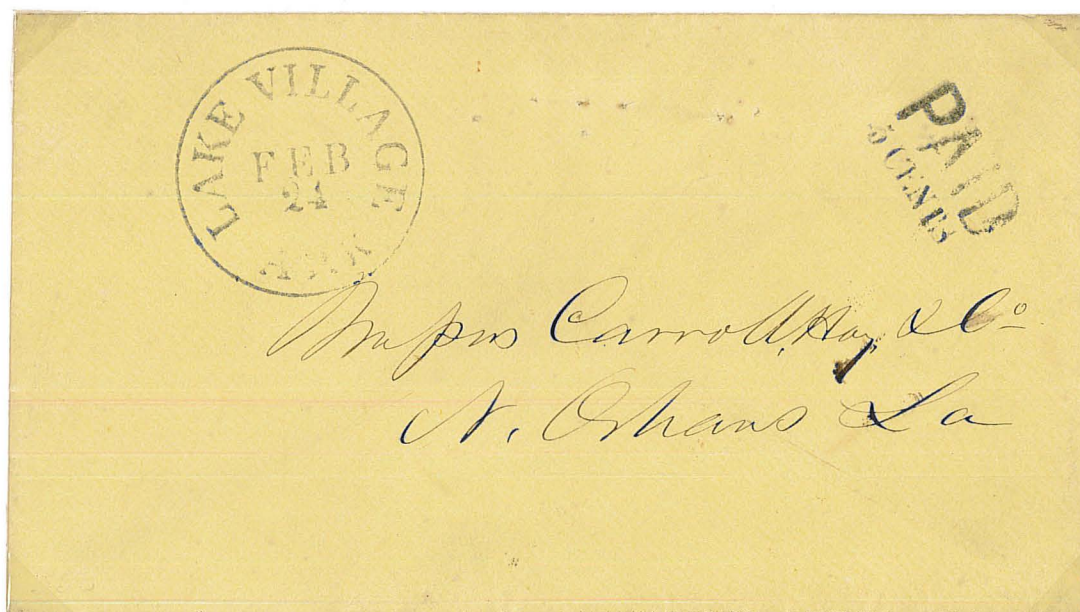 LAKE VILLAGE
FEB
24
ARK
PAID
5 CENTS
Messrs Carroll, Hoy & Co
N. Orleans La